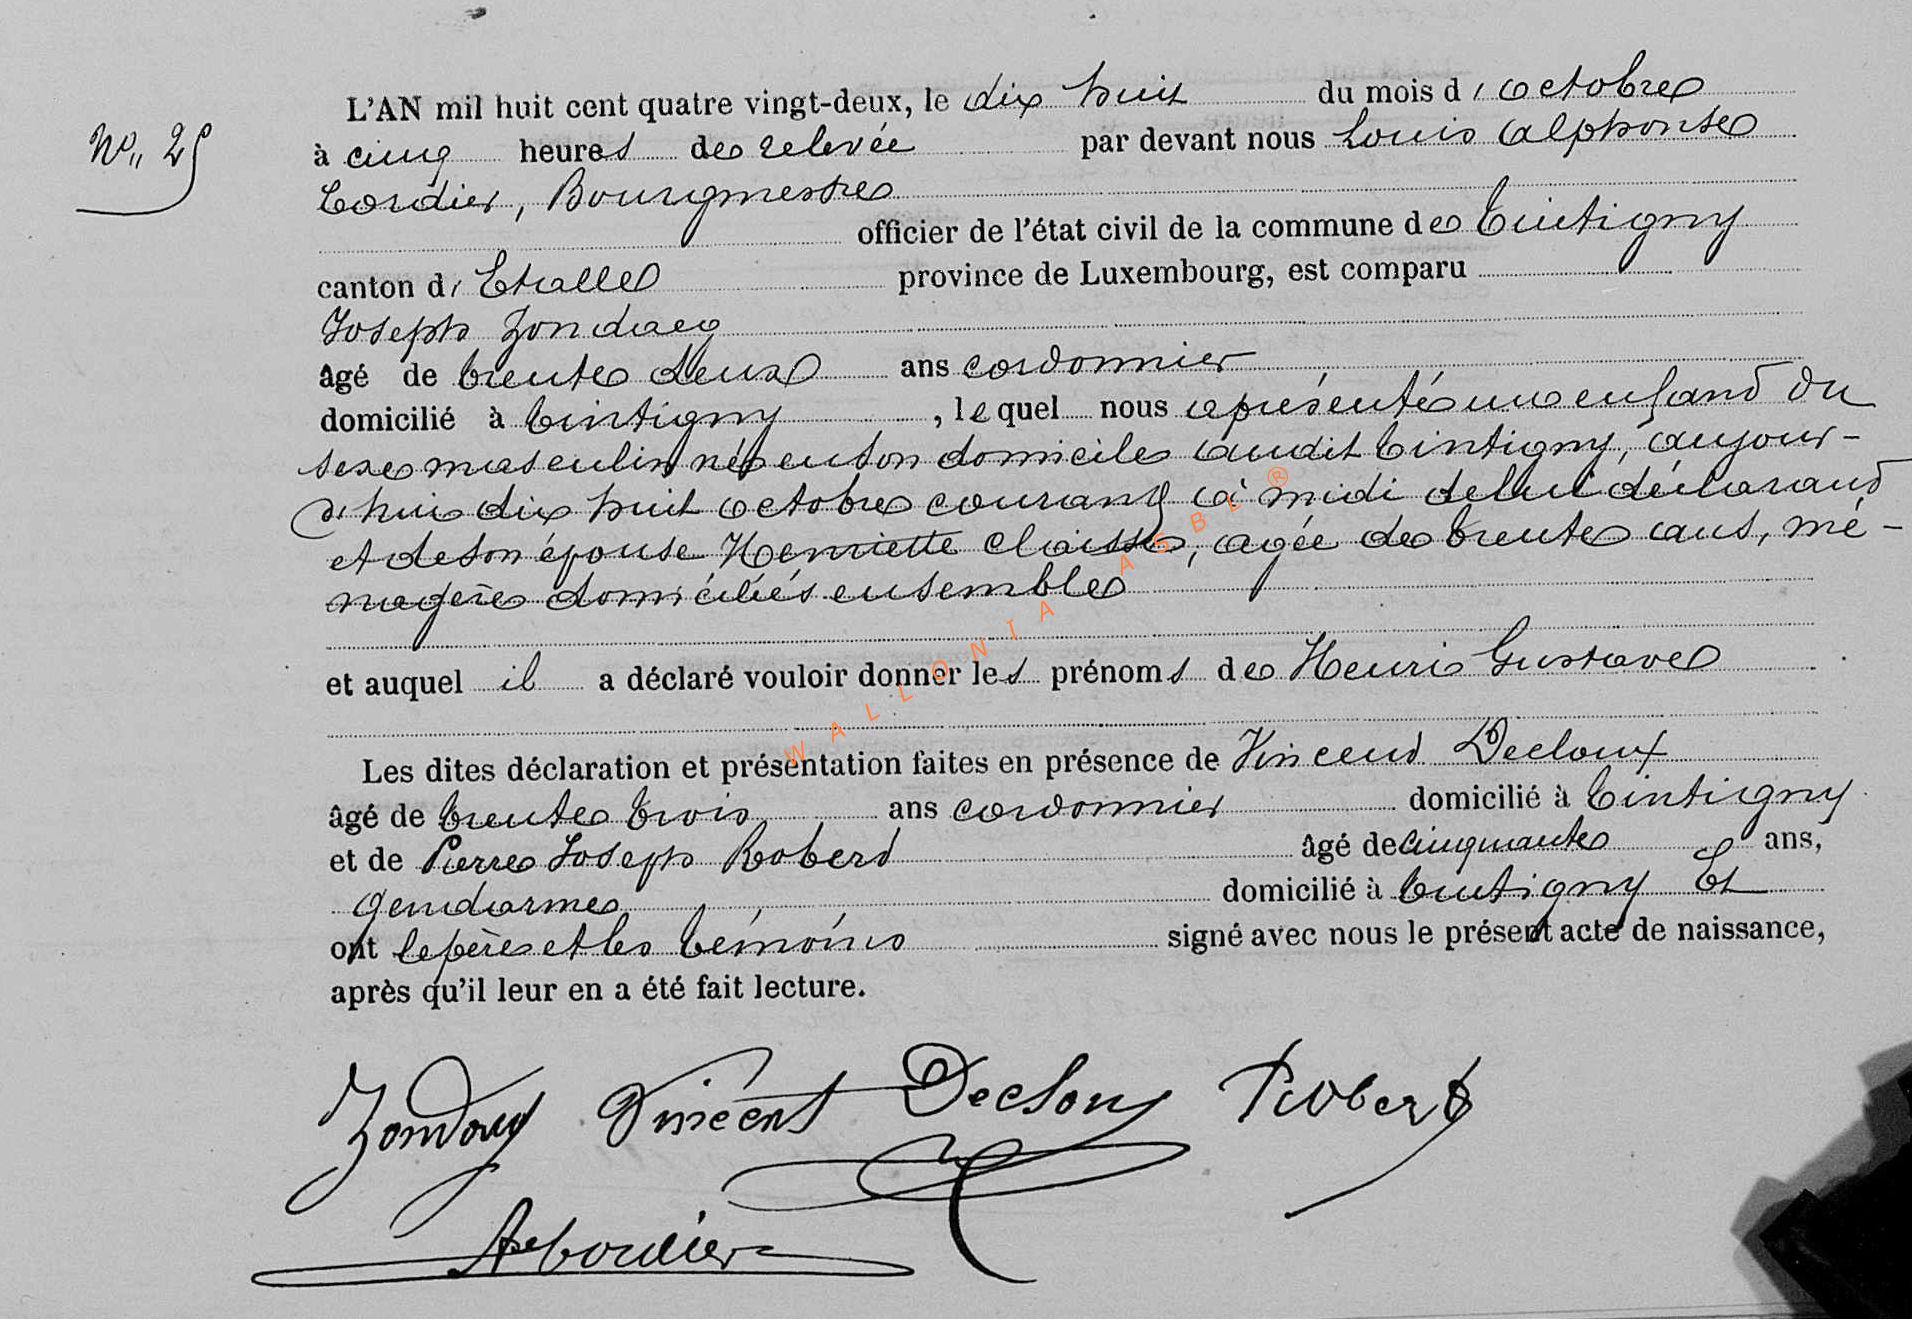 L'AN mil huit cent quatre vingt-deux, le dix huit du mois d'octobre
N° 25
à cinq heures de relevée par devant nous Louis Alphonse
Cordier, Bourgmestre
officier de l'état civil de la commune de Tintigny
canton d'Etalle province de Luxembourg, est comparu
Joseph Zondacq
âgé de trente deux ans cordonnier
domicilié à Tintigny, lequel nous a présenté un enfand du
sexe masculin né en son domicile audit Tintigny, aujour-
d'hui dix huit octobre courant à midi de lui déclarand
et de son épouse Henriette Claisse, agée de trente ans, mé-
nagère domiciliés ensemble
et auquel il a déclaré vouloir donner les prénoms de Henri Gustave
Les dites déclaration et présentation faites en présence de Vincend Decloux
âgé de trente trois ans cordonnier domicilié à Tintigny
et de Pierre Joseph Roberd âgé de cinquante ans,
gendarme domicilié à Tintigny Et
ont le père et les témoins signé avec nous le présent acte de naissance,
après qu'il leur en a été fait lecture.
Zondacq Vincent Decloux Robert
A Cordier
WALLONIA ASBL ®